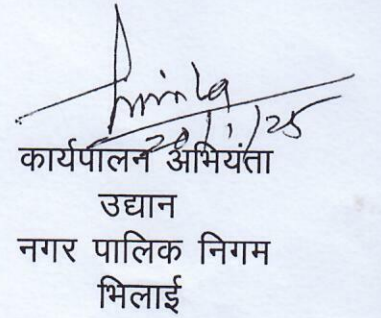 20/1/25
कार्यपालन अभियंता
उद्यान
नगर पालिक निगम
भिलाई